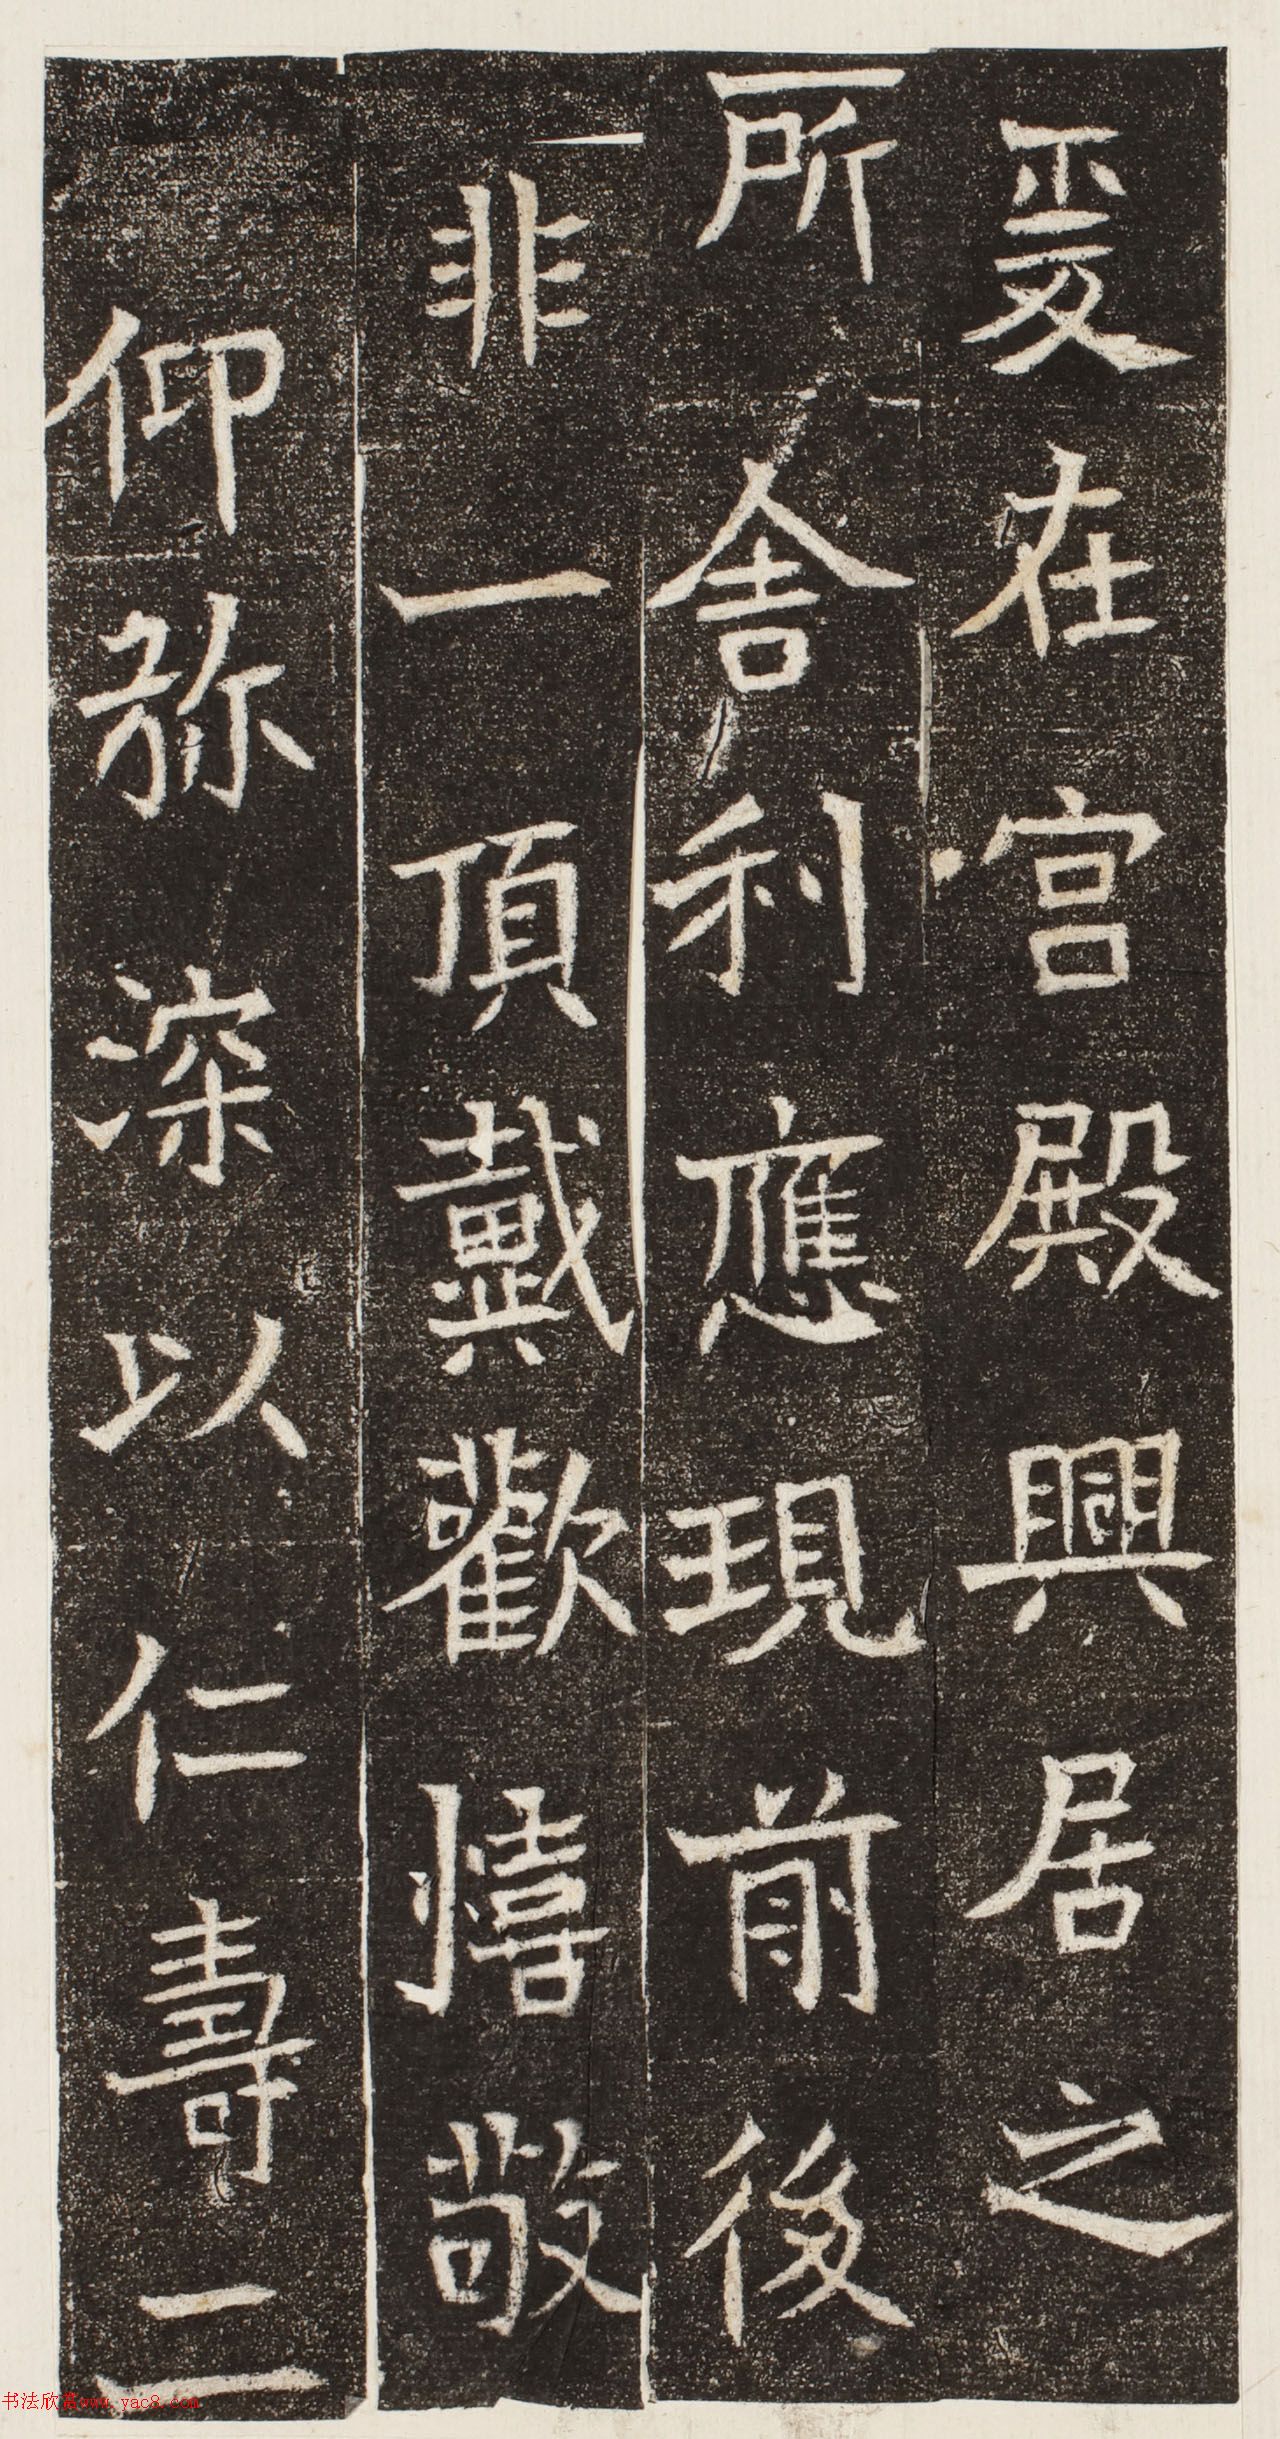 爰在宮殿興居之
所舍利應現前後
非一頂戴歡憘敬
仰弥深以仁壽二
书法欣赏www.yac8.com